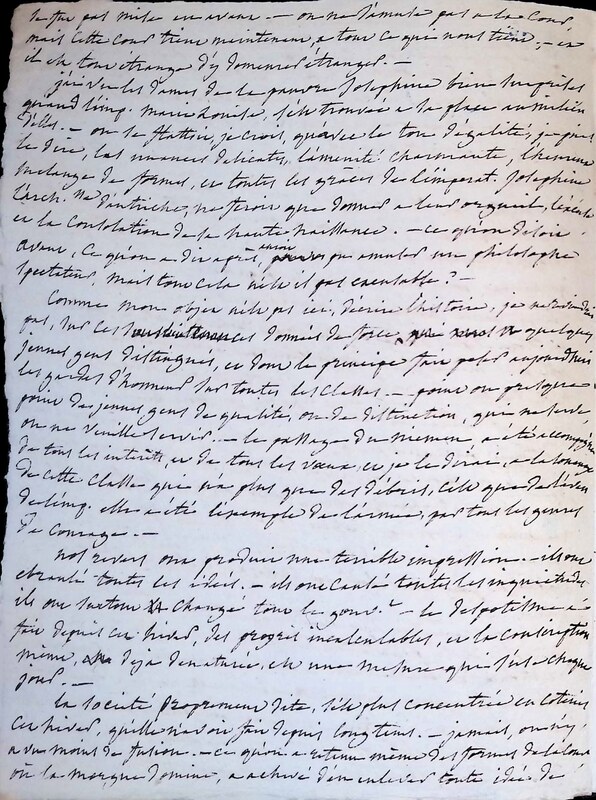 se fut pas mise en avant. — on ne s'amuse pas a la Cour
mais cette cour tient maintenant a tout ce qui nous tient, — et
il est tout etrange d'y demeurer étranger. —
j'ai vu les Dames de la pauvre Josephine bien surprises
quand l'imp. marie Louise, s'est trouvée a la place au milieu
d'elles. — on se flattoit, je crois, qu'avec le ton d'égalité, je puis
le dire, les nuances delicates, l'aménité charmante, l'heureux
melange de formes, et toutes les grâces de l'imperat. Josephine
l'arch. sse d'autriche, ne feroit que donner a leur orgueil,
et la consolation de la haute naissance. — ce qu'on disoit
avant, ce qu'on a dit après, auroit pu amuser un philosophe
spectateur, mais tout cela n'est il pas excusable? —
Comme mon objet n'est pas ici, d'écrire l'histoire, je ne
pas, sur ces données de force, quelques
jeunes gens distingués, et dont le principe fait peser aujourd'hui
les gardes d'honneur sur toutes les classes. — point ou presque
point de jeunes gens de qualité, ou de distinction, qui ne serve,
ou ne veuille servir. — le passage du a été accompagné
de tous les interêts, et de tous les vœux, et je le dirai, a la louange
de cette classe qui n'a plus que des débris, c'est que
de l'imp. elle a été l'exemple de l'armée, par tous les genres
de courage. —
nos revers ont produit une terrible impression — ils ont
ebranlé toutes les idées. — ils ont causé toutes les inquietudes
ils ont surtout changé tout le gouv.t — le despotisme a
fait depuis cet hiver, des progrès incalculables, et la conscription
même, deja denaturée, est une mesure qui s'use chaque
jour. —
la société proprement dite, s'est plus concentrée en coteries
cet hiver, qu'elle n'avoit fait depuis longtems. — jamais, on n'y
a vu moins de fusion. — ce qu'on a retenu même des formes de la cour
où la morgue domine, a achevé d'en enlever toute idée de